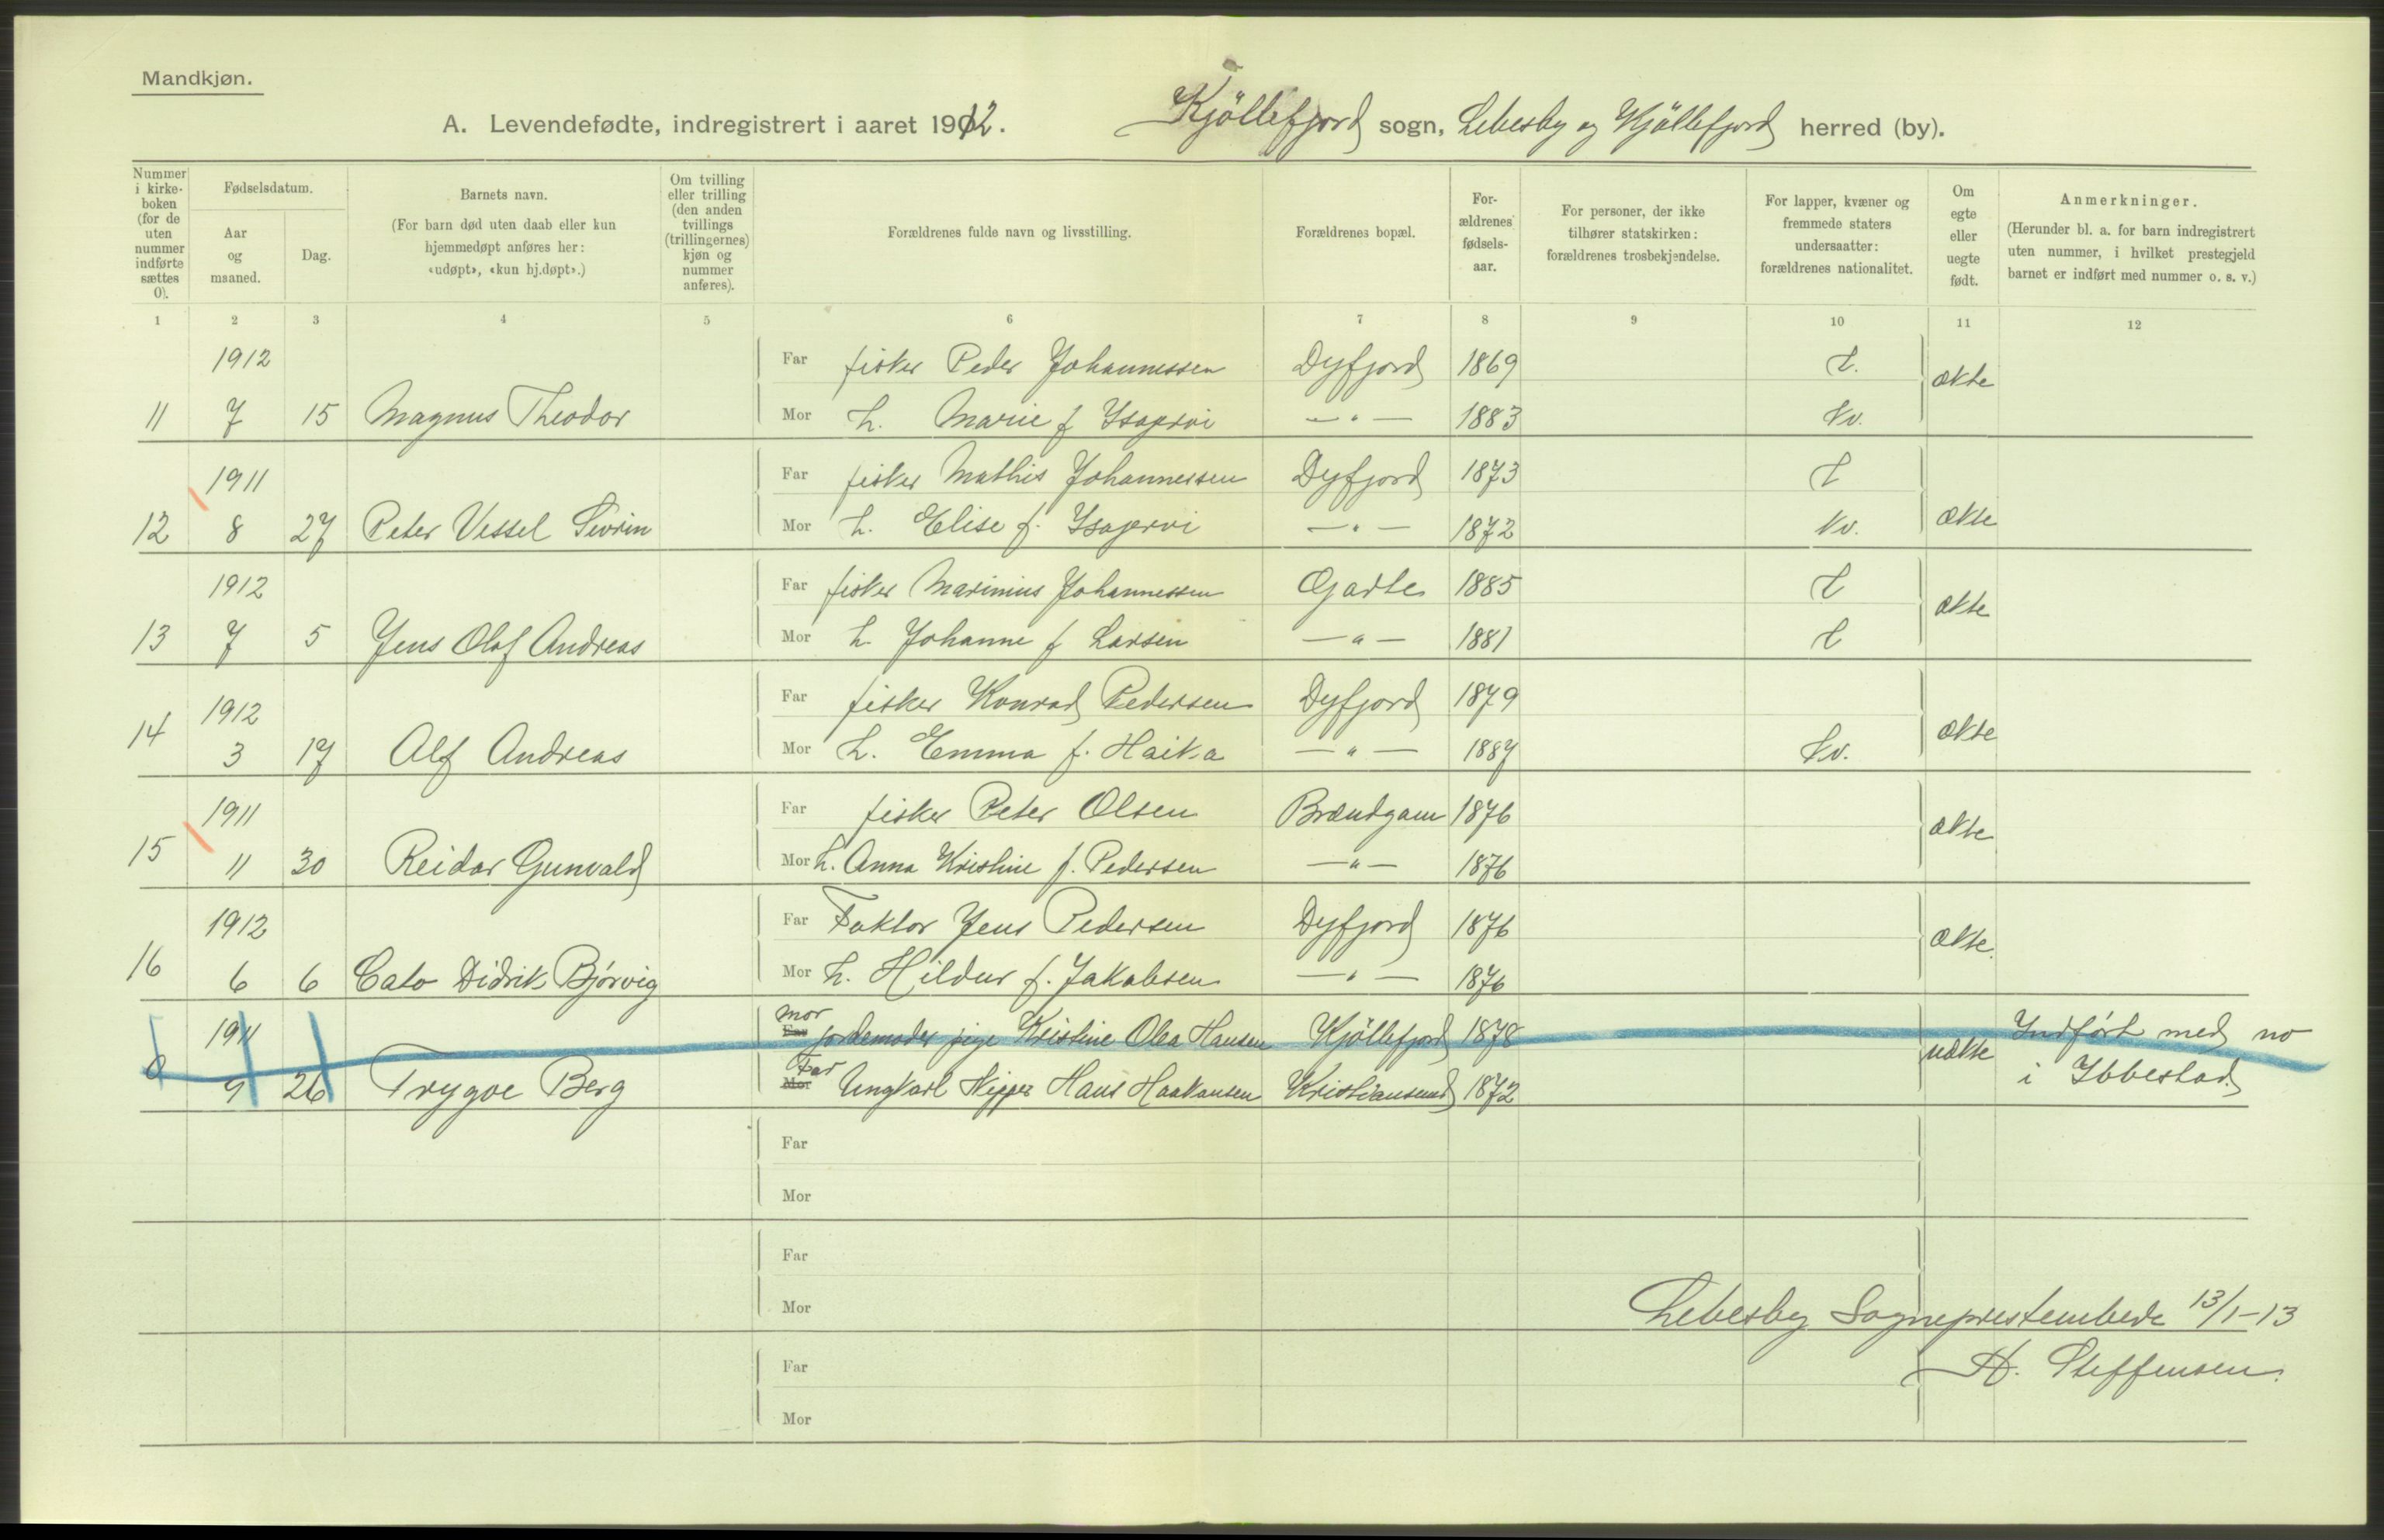 Mandkjøn.
A. Levendefødte, indregistrert i aaret 1912. Kjöllefjord sogn, Lebesby og Kjöllefjord herred (by).
Nummer i kirkeboken (for de uten nummer indførte sættes 0).
Fødselsdatum.
Aar og maaned.
Dag.
Barnets navn.
(For barn død uten daab eller kun hjemmedøpt anføres her: «udøpt», «kun hj.døpt».)
Om tvilling eller trilling (den anden tvillings (trillingernes) kjøn og nummer anføres).
Forældrenes fulde navn og livsstilling.
Forældrenes bopæl.
Forældrenes fødselsaar.
For personer, der ikke tilhører statskirken: forældrenes trosbekjendelse.
For lapper, kvæner og fremmede staters undersaatter: forældrenes nationalitet.
Om egte eller uegte født.
Anmerkninger.
(Herunder bl. a. for barn indregistrert uten nummer, i hvilket prestegjeld barnet er indført med nummer o. s. v.)
1 2 3 4 5 6 7 8 9 10 11 12
1912 Far fisker Peder Johannessen Dyfjord 1869 L. ækte
11 7 15 Magnus Theodor Mor h. Marie f — " — 1883 kv.
1911 Far fisker Mathis Johannessen Dyfjord 1873 L ækte
12 8 27 Peter Vessel Sevrin Mor h. Elise f. — " — 1872 kv.
1912 Far fisker Marinius Johannessen 1885 L ækte
13 7 5 Jens Olaf Andreas Mor h. Johanne f Larsen — " — 1881 L
1912 Far fisker Konrad Pedersen Dyfjord 1879 ækte
14 3 17 Alf Andreas Mor h. Emma f. Haika — " — 1887 kv.
1911 Far fisker Peter Olsen Brændgam 1876 ækte
15 11 30 Reidar Gunvald Mor h. Anna Kristine f. Pedersen — " — 1876
1912 Far Faktor Jens Pedersen Dyfjord 1876 ækte.
16 6 6 Cato Didrik Bjørvig Mor h. Hildur f. Jakobsen — " — 1876
1911 Mor Far jordemoder pige Kristine Olea Hansen Kjöllefjord 1878 uækte Indført med no
0 9 26 Trygve Berg Far Mor Ungkarl Skipper Hans Haakansen Kristiansund 1872 i Ibbestad
Far
Mor
Far
Mor
Lebesby Sogneprestembede 13/1-13
Far
H. Steffensen.
Mor